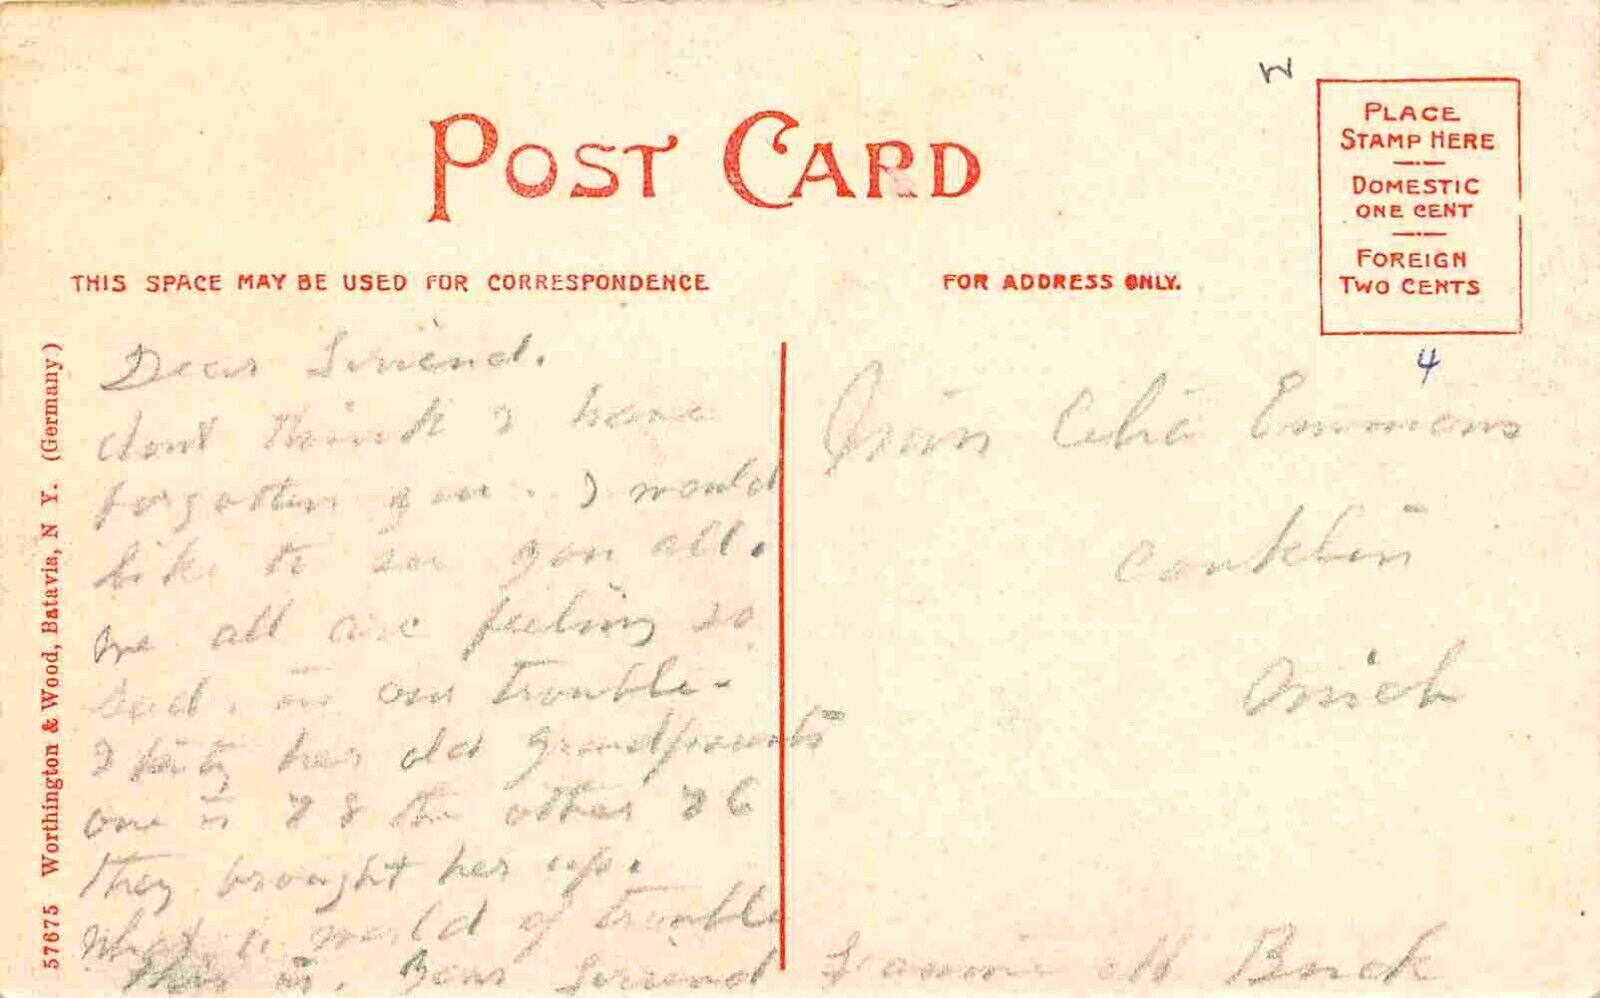 W
POST CARD
PLACE
STAMP HERE
DOMESTIC
ONE CENT
FOREIGN
TWO CENTS
THIS SPACE MAY BE USED FOR CORRESPONDENCE
FOR ADDRESS ONLY.
4
57675 Worthington & Wood, Batavia, N Y. (Germany)
Dear Friend.
dont think I have
forgotten you. I would
like to see you all.
we all are feeling so
sad. in our trouble.
I pity her old Grandparents
one is 78 the other 76
they brought her up.
What a world of trouble
this is. Your Friend
Fannie M Buck
Celia Emmons
Conklin
Mich